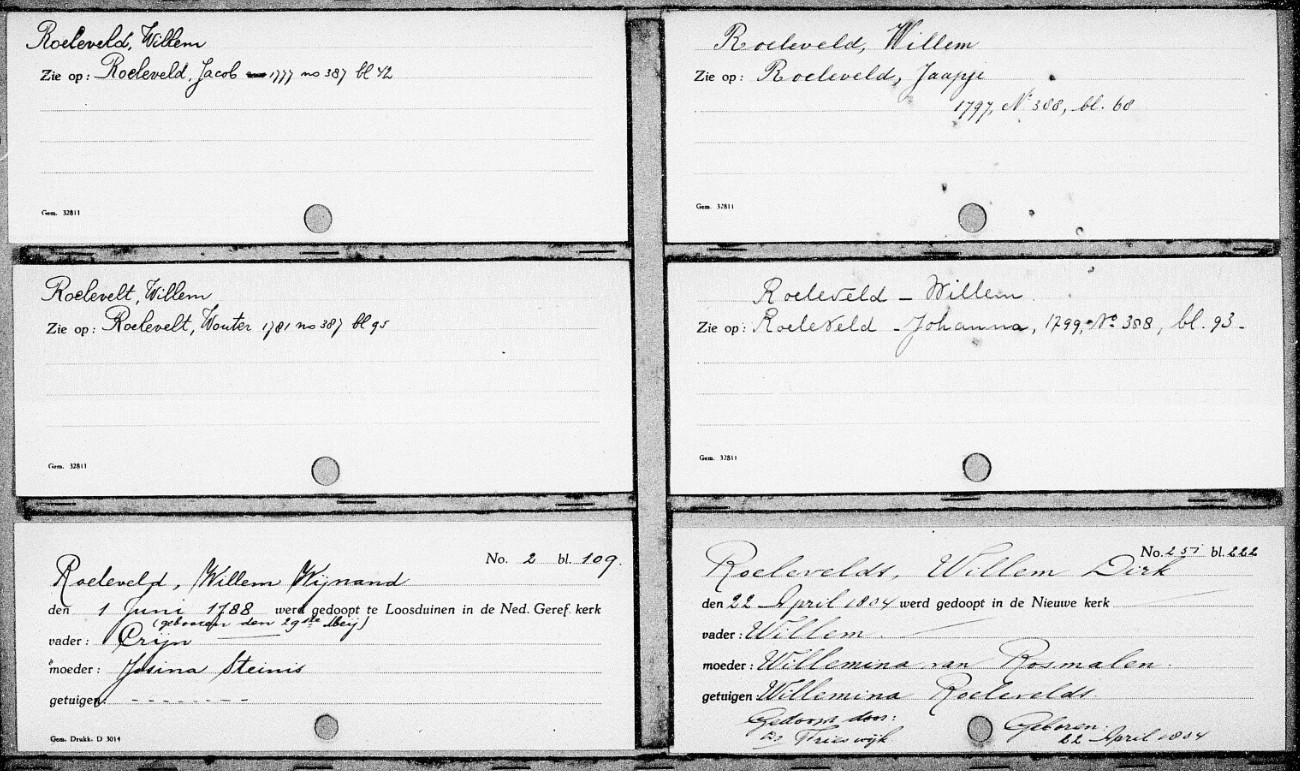 Roeleveld, Willem
Zie op: Roeleveld, Jacob 1777 no 387 bl 42
Gem. 32811
Roeleveld, Willem
Zie op: Roeleveld, Jaapje
1797, No 388, bl. 68
Gem. 32811
Roelevelt, Willem
Zie op: Roelevelt, Wouter 1781 no 387 bl 95
Gem. 32811
Roeleveld - Willem
Zie op: Roeleveld - Johanna, 1799, No 388, bl. 93-
Gem. 32811
No. 2 bl. 109.
Roeleveld, Willem Wijnand
den 1 Juni 1788 werd gedoopt te Loosduinen in de Ned. Geref. kerk
(geboren den 29ste Meij)
vader: Crijn
moeder: Josina Steinis
getuigen:
Gem. Drukk. D 3014
No. 251 bl. 222
Roelevelds, Willem Dirk
den 22 April 1804 werd gedoopt in de Nieuwe kerk
vader: Willem.
moeder: Willemina van Rosmalen.
getuigen: Willemina Roelevelds.
Gedoopt door: Geboren:
22 April 1804